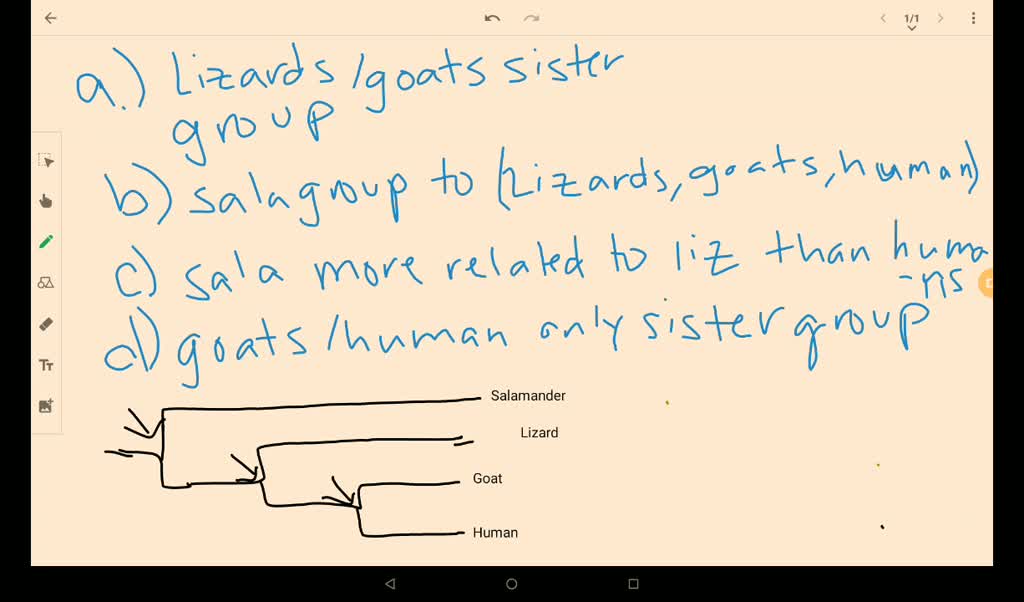 1/1
a.) Lizards/goats sister
group
b) salagroup to (Lizards, goats, human)
c) sala more related to liz than huma
-ns
d) goats/human only sister group
Tт
Salamander
Lizard
Goat
Human